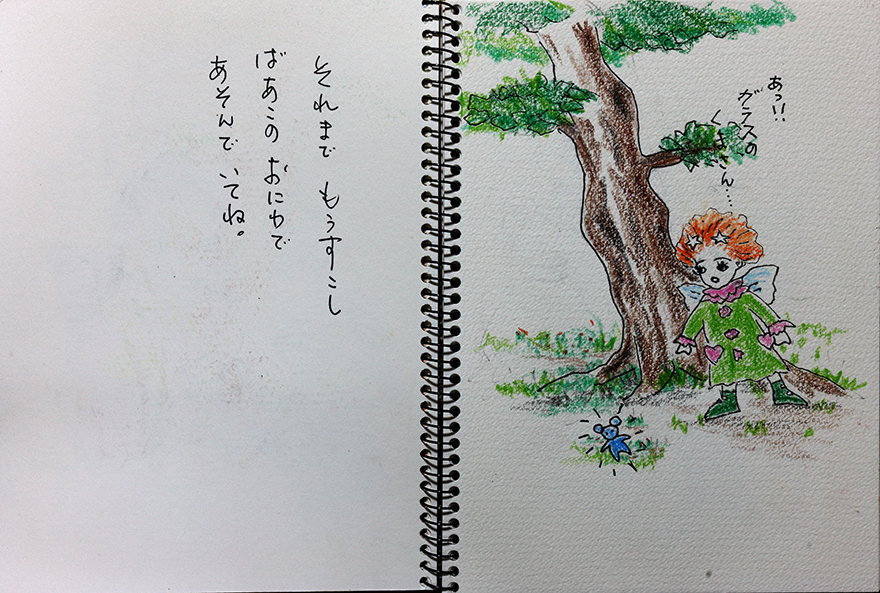 それまで もうすこし
ばあこの おにわで
あそんで いてね。
あっ!!
ガラスの
くまさん…